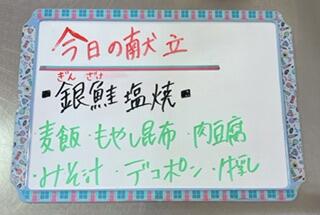 今日の献立
ぎん ざけ
■銀鮭塩焼■
麦飯・もやし昆布・肉豆腐
・みそ汁・デコポン・牛乳